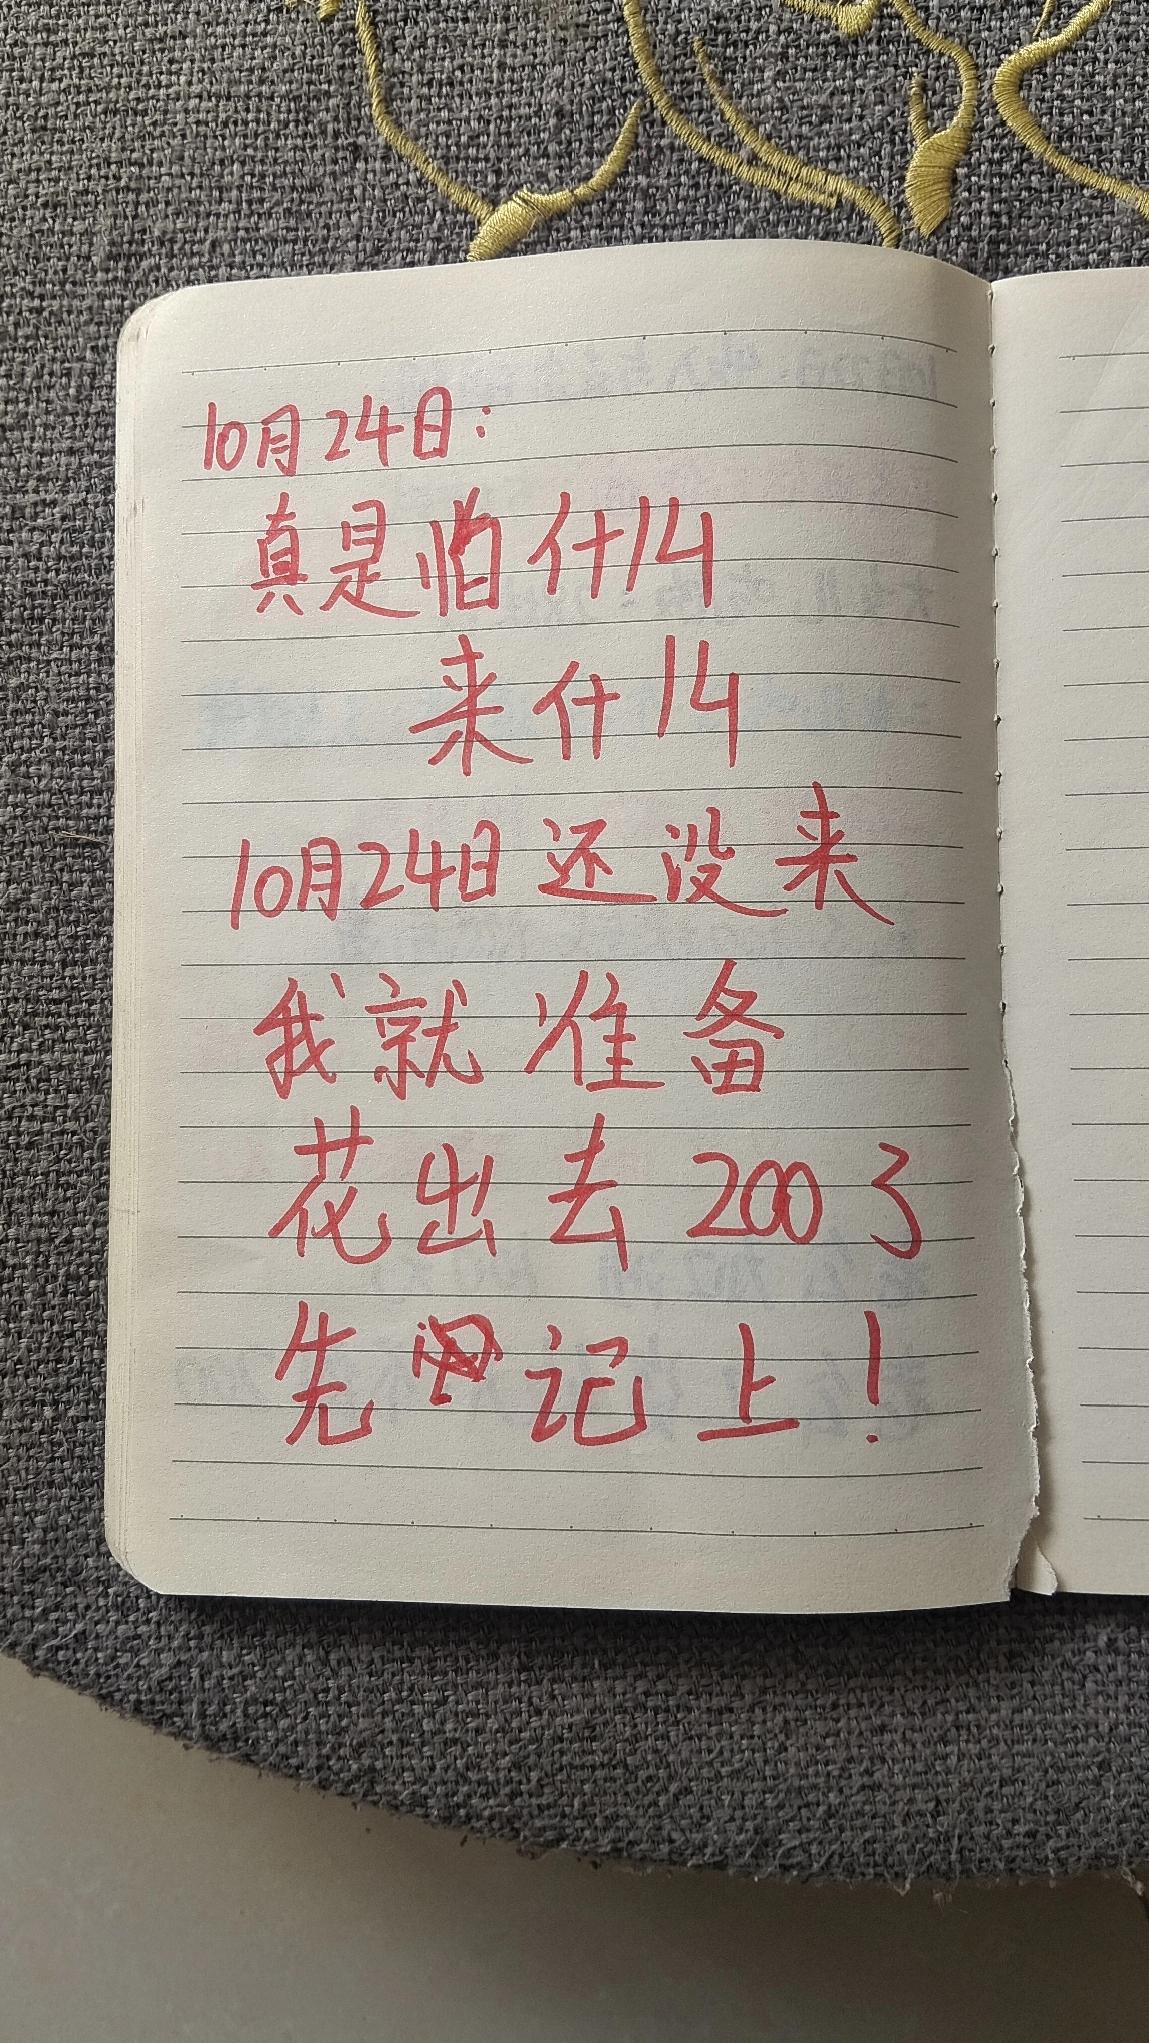 10月24日：
真是怕什14
来什14
10月24日还没来
我就准备
花出去200了
先记上！